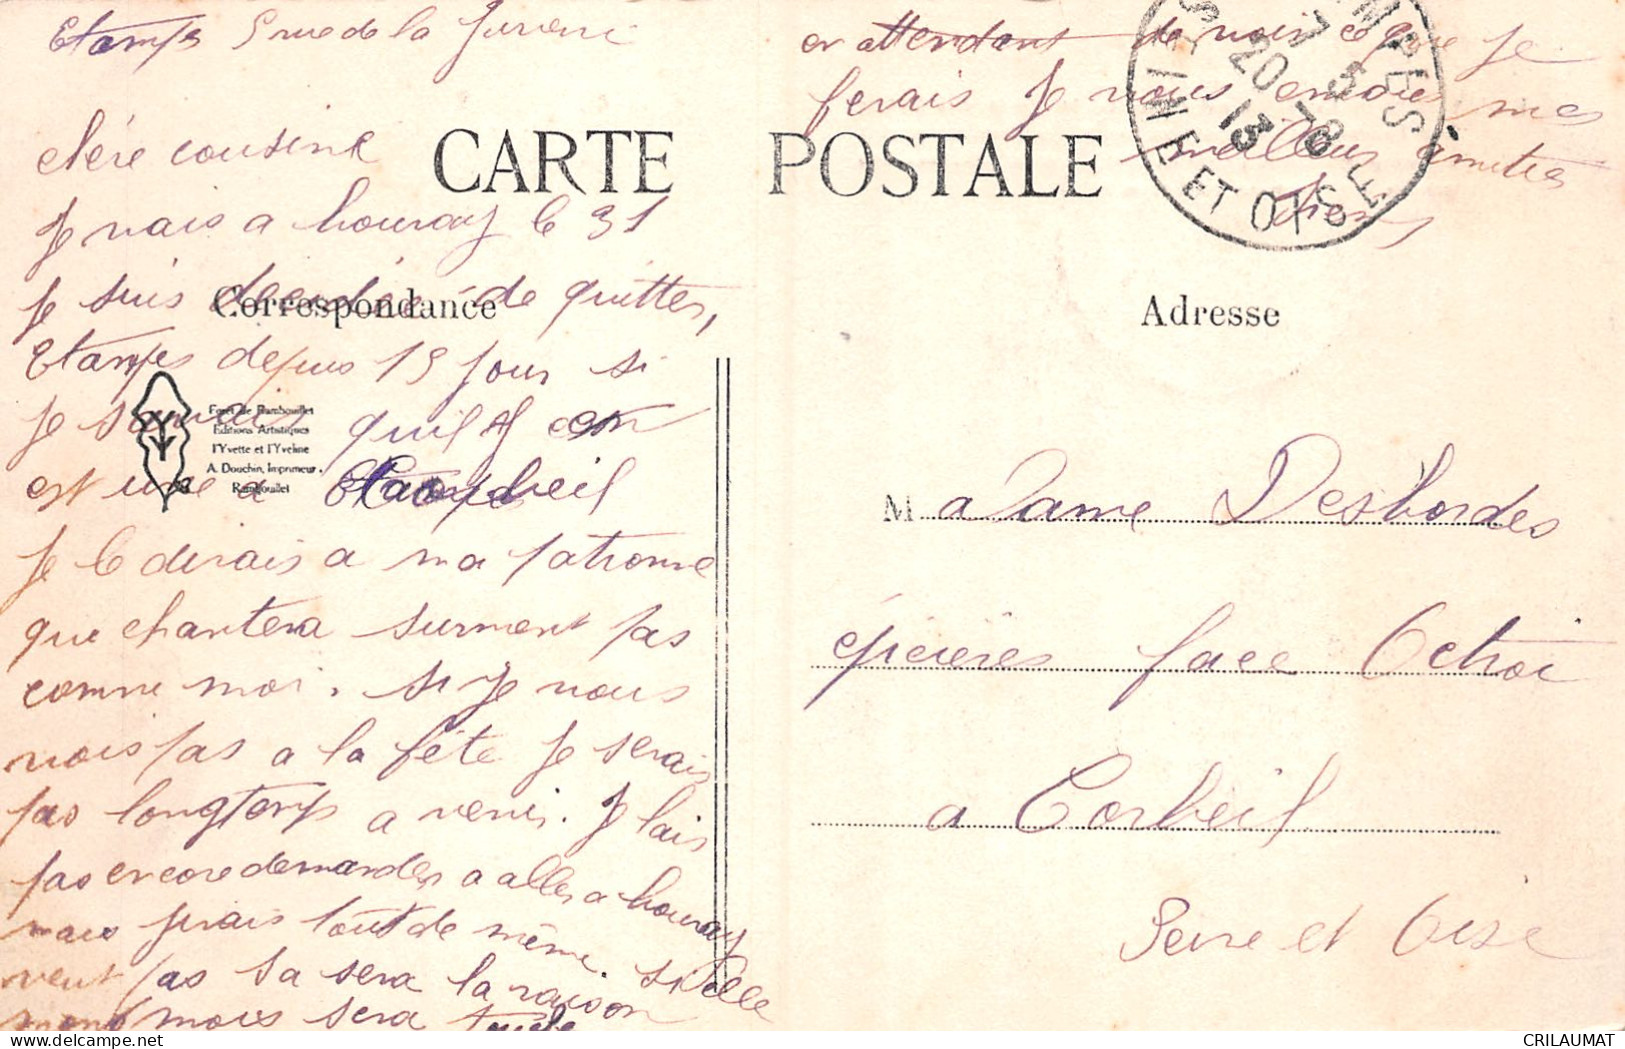 Etampes 5 rue de la
chère cousine
Je vais a houray le 31
Je suis de quitter,
Etampes depuis 15 jour si
Je savais quil y en
est une a Corbeil
Je le dirais a ma patronne
que chantera surment pas
comme moi. si Je vous
vois pas a la fête Je serais
pas longtemps a venir. Je lais
pas encore demander a aller a houray
mais jirais tout de même. si elle
veut pas sa sera la raison
mois sera
CARTE POSTALE
Correspondance
Forêt de Rambouillet
Editions Artistiques
l'Yvette et l'Yveline
A. Douchin, Imprimeur.
Rambouillet
en attendant de voir ce que Je
ferais Je vous envoies mes
meilleurs amitiés
ETAMPES
20
13
SEINE ET OISE
Adresse
Madame Desbordes
épicières face Octroi
a Corbeil
Seine et Oise
CRILAUMAT